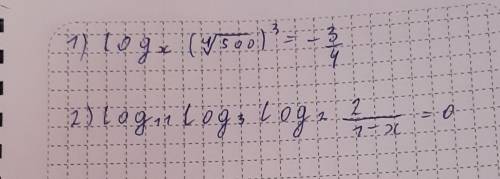 1) log_x (∜500)^3 = -3/4
2) log_11 log_3 log_2 2/(1-x) = 0